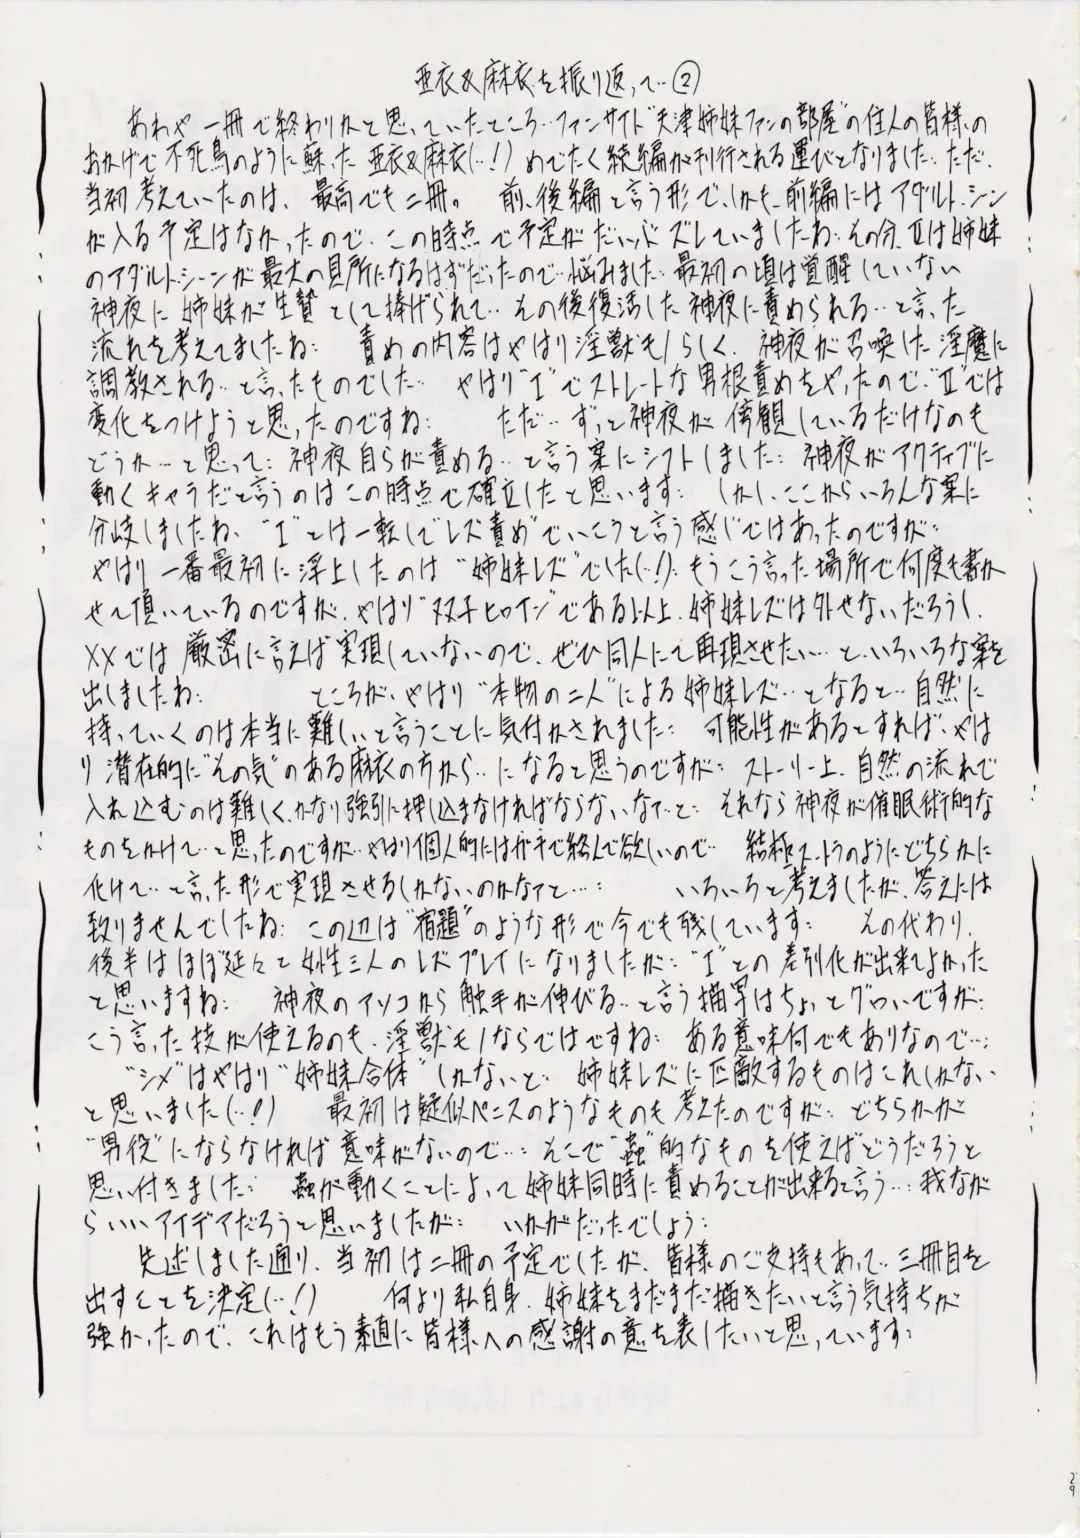 亜衣&麻衣を振り返って‥②
あわや一冊で終わりかと思っていたところ‥ファンサイト"天津姉妹ファンの部屋"の住人の皆様の
おかげで不死鳥のように蘇った 亜衣&麻衣(‥!) めでたく続編が刊行される運びとなりました‥ただ、
当初考えていたのは、最高でも二冊。 前、後編と言う形で、しかも、前編にはアダルト・シーン
が入る予定はなかったので、この時点で予定がだいぶズレていましたね‥その分、Ⅱは姉妹
のアダルトシーンが最大の見所になるはずだったので‥悩みました‥最初の頃は覚醒していない
神夜に姉妹が生贄として捧げられて‥その後復活した神夜に責められる‥と言った
流れを考えてましたね‥ 責めの内容はやはり淫獣モノらしく、神夜が召喚した淫魔に
調教される‥と言ったものでした‥ やはり"Ⅰ"でストレートな男根責めをやったので、"Ⅱ"では
変化をつけようと思ったのですね‥ ただ‥ずっと神夜が傍観しているだけなのも
どうか‥と思って‥神夜自らが責める‥と言う案にシフトしました‥神夜がアクティブに
動くキャラだと言うのはこの時点で確立したと思います‥ しかし、ここからいろんな案に
分岐しましたね、"Ⅰ"とは一転して"レズ責め"でいこうと言う感じではあったのですが‥
やはり一番最初に浮上したのは"姉妹レズ"でした(‥!)‥もうこう言った場所で何度も書か
せて頂いているのですが、やはり"双子ヒロイン"である以上、姉妹レズは外せないだろうし、
XXでは厳密に言えば実現していないので、ぜひ同人にて再現させたい‥と、いろいろな案を
出しましたね‥ ところが、やはり"本物の二人"による姉妹レズ‥となると‥自然に
持っていくのは本当に難しいと言うことに気付かされました‥ 可能性があるとすれば、やは
り潜在的に"その気"のある麻衣の方から‥になると思うのですが‥ストーリー上、自然の流れで
入れ込むのは難しく、かなり強引に押し込まなければならないなァ‥と‥それなら神夜が催眠術的な
ものをかけて‥と思ったのですが‥やはり個人的にはガチで絡んで欲しいので‥ 結極スートラのようにどちらかに
化けて‥と言った形で実現させるしかないのかなァと‥‥ いろいろと考えましたが、答えには
致りませんでしたね‥この辺は"宿題"のような形で今でも残しています‥ その代わり、
後半はほぼ延々と女性三人のレズプレイになりましたが‥"Ⅰ"との差別化が出来てよかった
と思いますね‥ 神夜のアソコから触手が伸びる‥と言う描写はちょっとグロいですが‥
こう言った技が使えるのも、淫獣モノならではですね‥ ある意味何でもありなので‥
"シメ"はやはり"姉妹合体"しかないと‥ 姉妹レズに匹敵するものはこれしかない
と思いました(‥!) 最初は疑似ペニスのようなものも考えたのですが‥どちらかが
"男役"にならなければ意味がないので‥そこで"蟲"的なものを使えばどうだろうと
思い付きました‥ 蟲が動くことによって姉妹同時に責めることが出来ると言う‥我なが
らいいアイデアだろうと思いましたが‥ いかがだったでしょう‥
先述しました通り、当初は二冊の予定でしたが、皆様のご支持もあって、三冊目を
出すことを決定(‥!) 何より私自身、姉妹をまだまだ描きたいと言う気持ちが
強かったので、これはもう素直に皆様への感謝の意を表したいと思っています‥
29